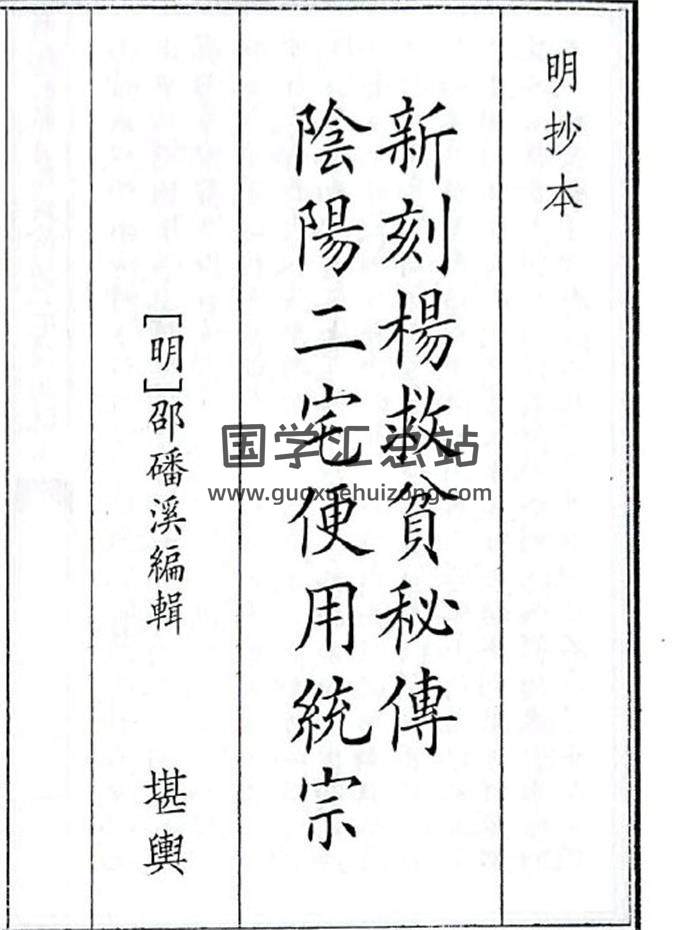 明抄本
新刻楊救貧秘傳
陰陽二宅便用統宗
[明]邵磻溪編輯 堪輿
国学汇总站
www.guoxuehuizong.com